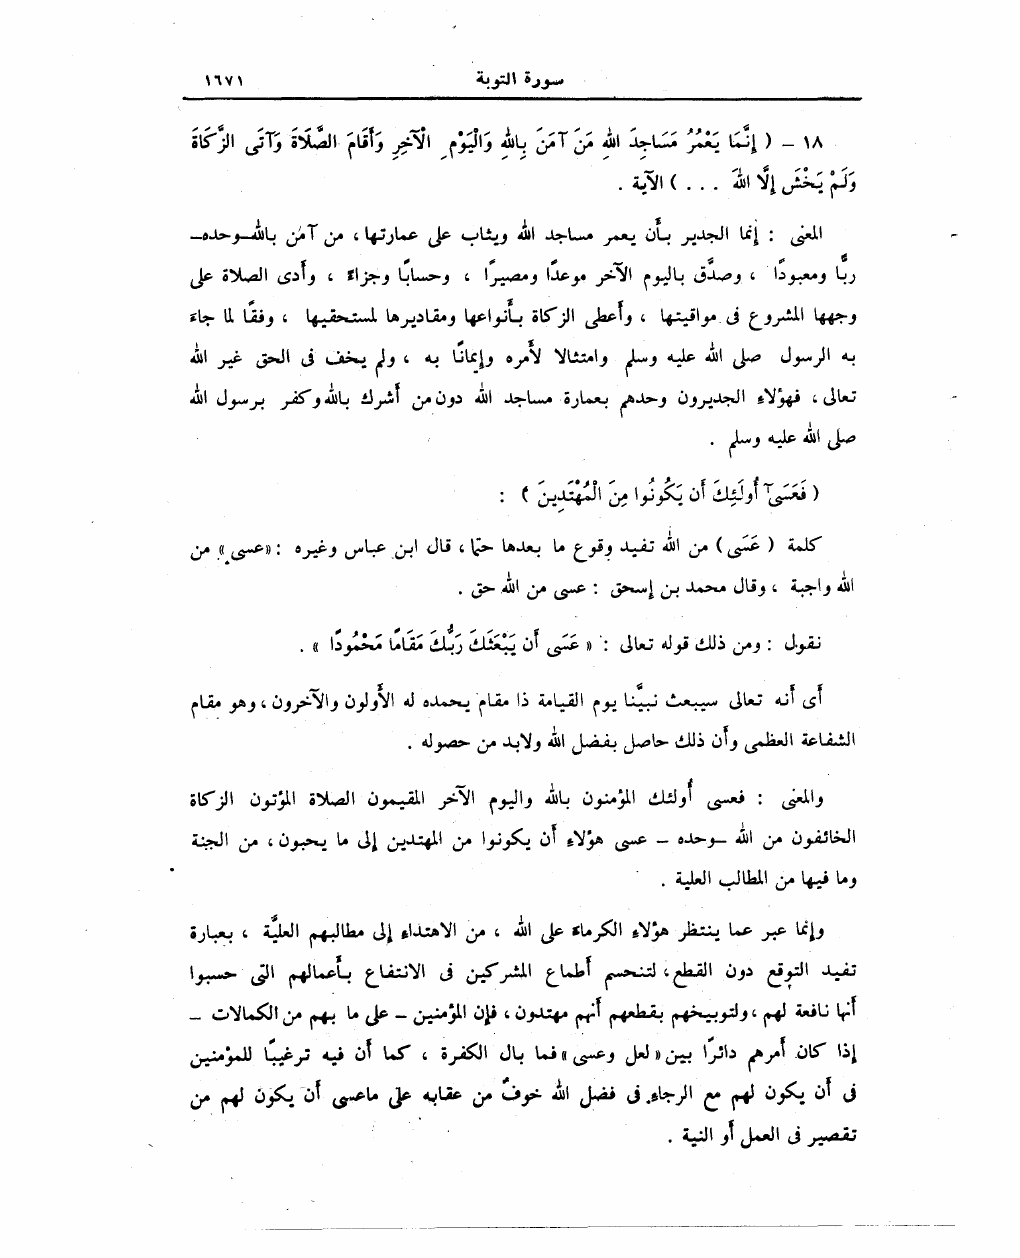 سورة التوبة
١٦٧١
١٨ – ( إِنَّمَا يَعْمُرُ مَسَاجِدَ اللهِ مَنَ آمَنَ بِاللهِ وَالْيَوْمِ الْآخِرِ وَأَقَامَ الصَّلَاةَ وَآتَى الزَّكَاةَ
وَلَمْ يَخْشَ إِلَّا اللهَ ... ) الآية .
المعنى : إنما الجدير بأن يعمر مساجد الله ويثاب على عمارتها ، من آمن بالله–وحده–
ربًّا ومعبودًا ، وصدَّق باليوم الآخر موعدًا ومصيرًا ، وحسابًا وجزاءً ، وأدى الصلاة على
وجهها المشروع فى مواقيتها ، وأعطى الزكاة بأنواعها ومقاديرها لمستحقيها ، وفقًا لما جاءَ
به الرسول صلى الله عليه وسلم وامتثالا لأمره وإيمانًا به ، ولم يخف فى الحق غير الله
تعالى ، فهؤلاءِ الجديرون وحدهم بعمارة مساجد الله دون من أشرك بالله وكفر برسول الله
صلى الله عليه وسلم .
( فَعَسَىٰٓ أُولَئِكَ أَن يَكُونُوا مِنَ الْمُهْتَدِينَ ) :
كلمة ( عَسَى ) من الله تفيد وقوع ما بعدها حتما ، قال ابن عباس وغيره : «عسى» من
الله واجبة ، وقال محمد بن إسحق : عسى من الله حق .
نقول : ومن ذلك قوله تعالى : « عَسَى أَن يَبْعَثَكَ رَبُّكَ مَقَامًا مَحْمُودًا » .
أى أنه تعالى سيبعث نبيَّنا يوم القيامة ذا مقام يحمده له الأَولون والآخرون ، وهو مقام
الشفاعة العظمى وأن ذلك حاصل بفضل الله ولابد من حصوله .
والمعنى : فعسى أُولئك المؤمنون بالله واليوم الآخر المقيمون الصلاة المؤتون الزكاة
الخائفون من الله –وحده – عسى هؤلاءِ أن يكونوا من المهتدين إلى ما يحبون ، من الجنة
وما فيها من المطالب العلية .
وإنما عبر عما ينتظر هؤلاءِ الكرماءَ على الله ، من الاهتداءِ إلى مطالبهم العليَّة ، بعبارة
تفيد التوقع دون القطع ، لتنحسم أطماع المشركين فى الانتفاع بأعمالهم التى حسبوا
أنها نافعة لهم ، ولتوبيخهم بقطعهم أنهم مهتدون ، فإن المؤمنين – على ما بهم من الكمالات –
إذا كان أمرهم دائرًا بين « لعل وعسى » فما بال الكفرة ، كما أن فيه ترغيبًا للمؤمنين
فى أن يكون لهم مع الرجاءِ فى فضل الله خوفٌ من عقابه على ماعسى أن يكون لهم من
تقصير فى العمل أو النية .